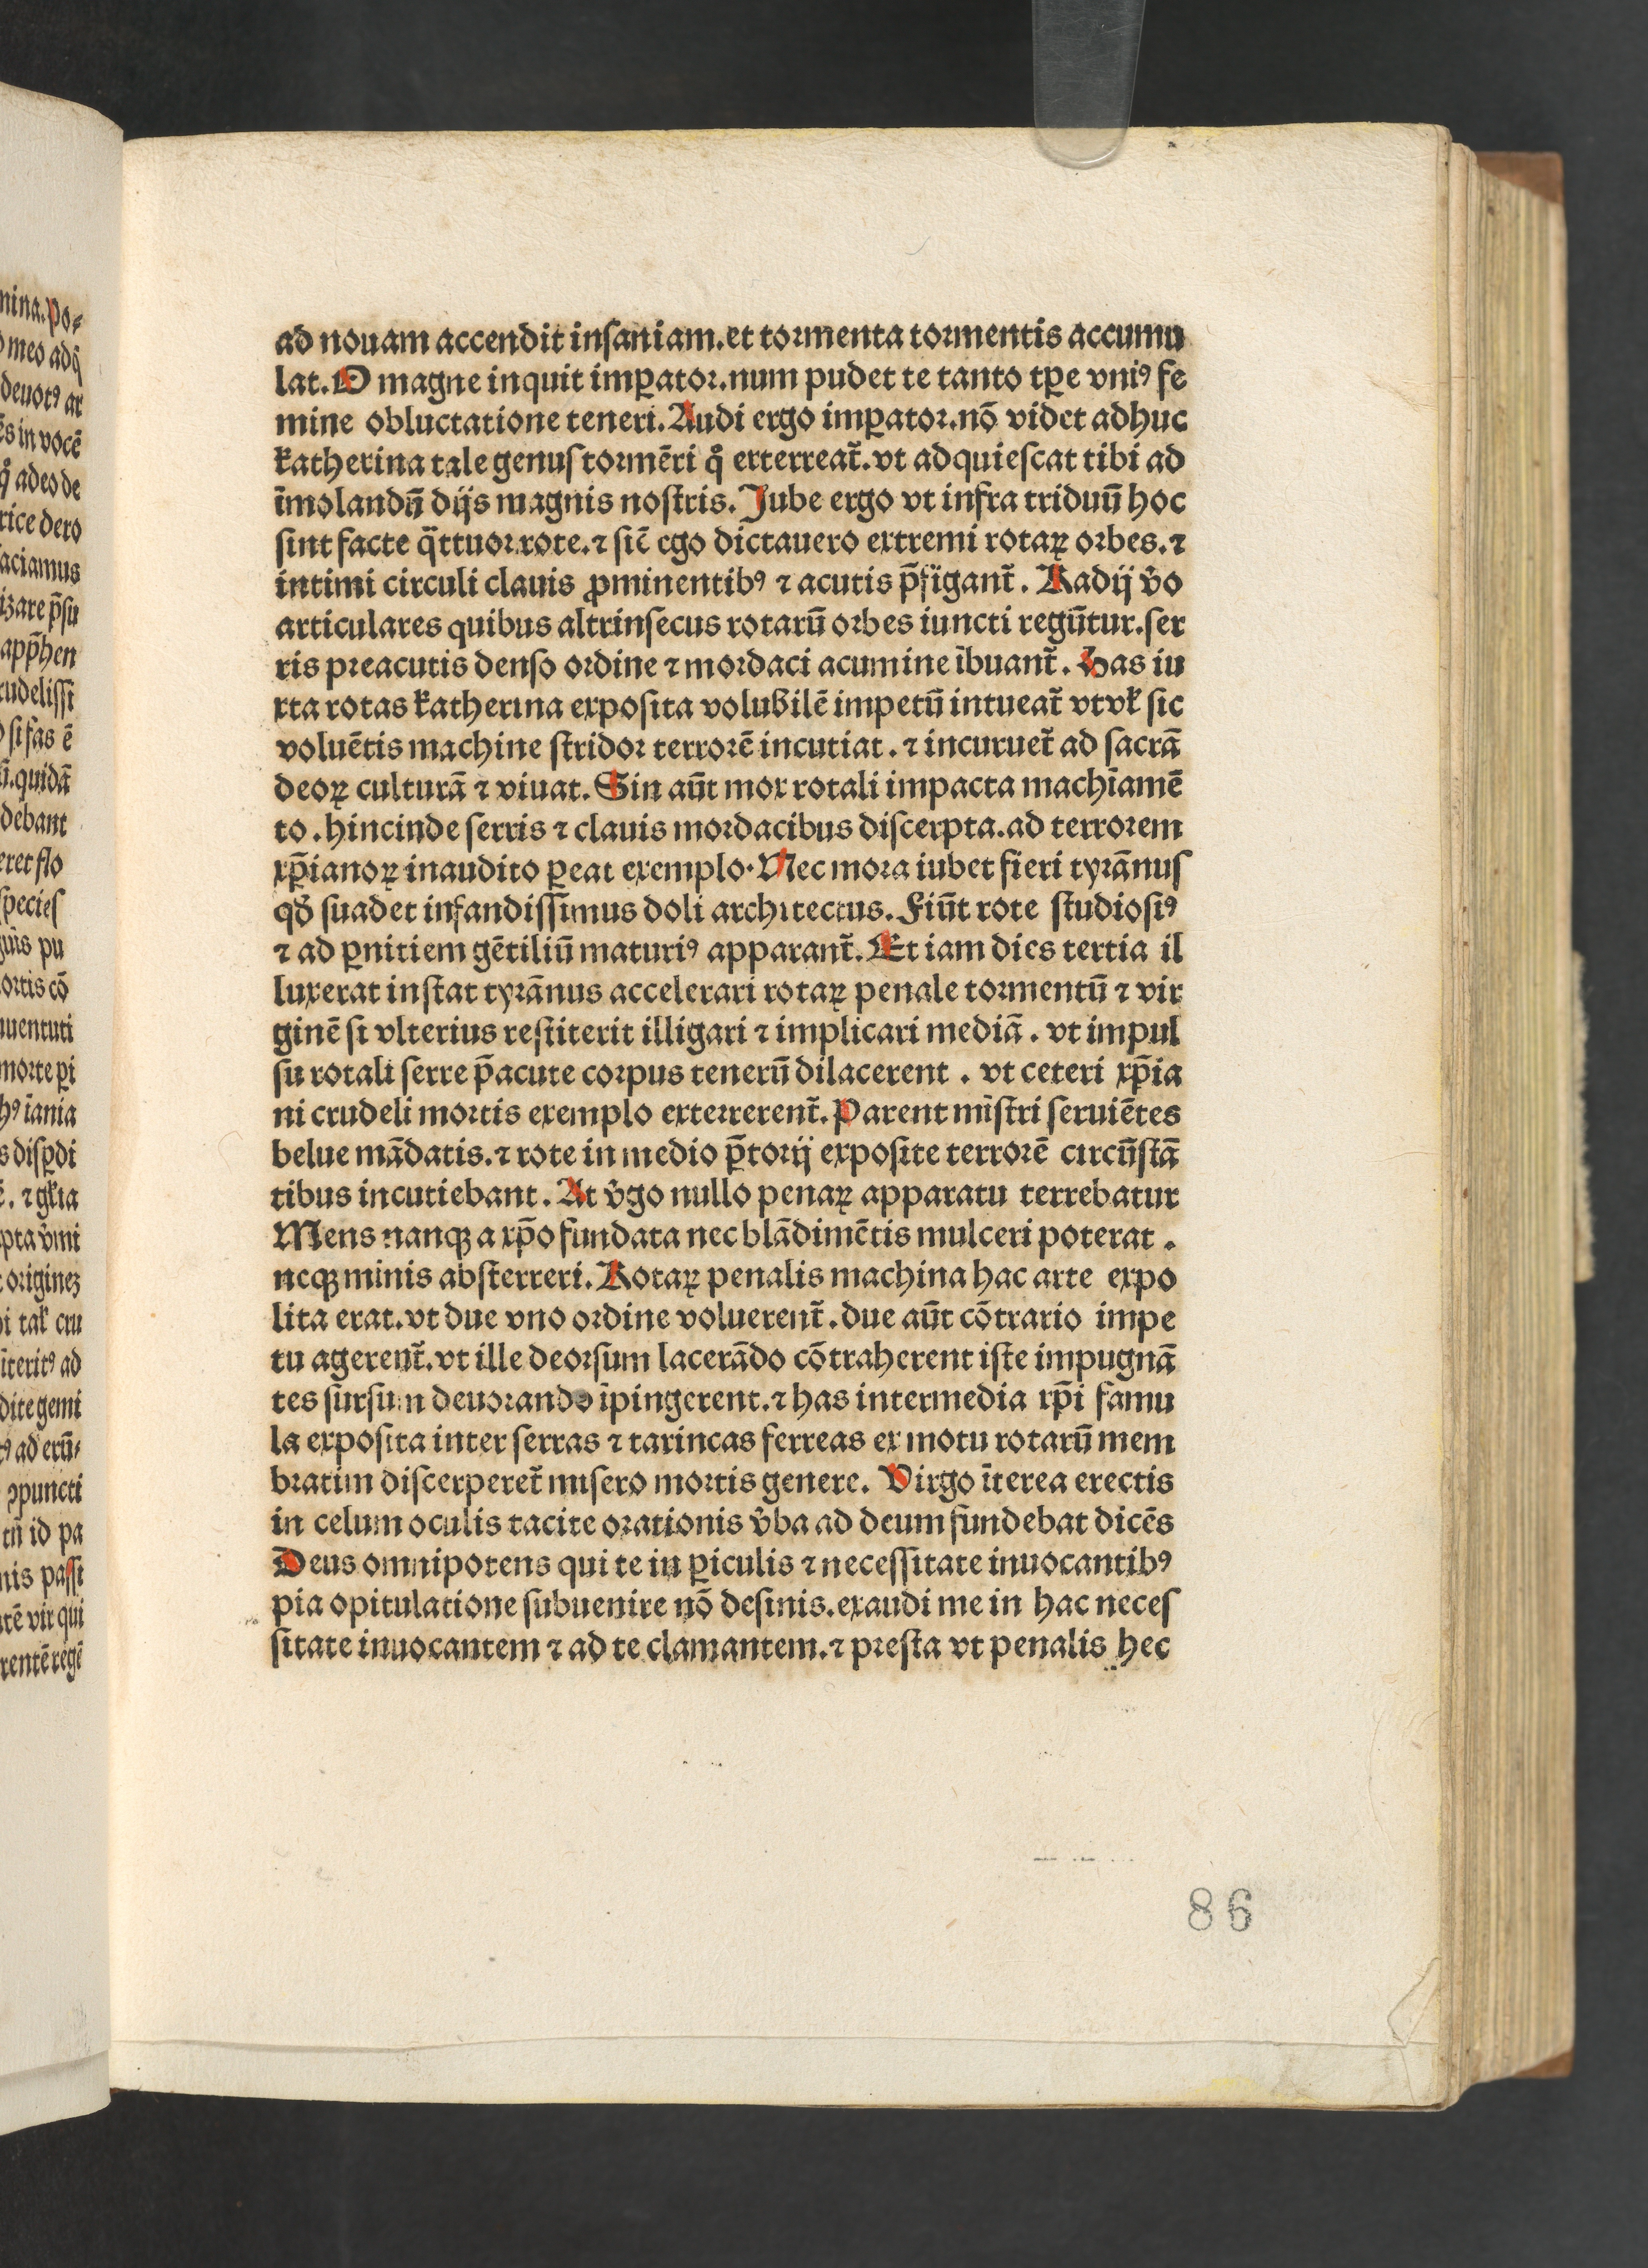 ad nouam accendit insaniam. et tormenta tormentis accumu
lat. O magne inquit imꝑator. num pudet te tanto tꝑe vniꝰ fe
mine obluctatione teneri. Audi ergo imꝑator. nō videt adhuc
katherina tale genus tormēti qͦ exterreat̄. vt adquiescat tibi ad
īmolandū dijs magnis nostris. Jube ergo vt infra triduū hoc
sint facte q̄ttuor rote. ⁊ sic̄ ego dictauero extremi rotaꝝ orbes. ⁊
intimi circuli clauis ꝓminentibꝰ ⁊ acutis p̄figant̄. Radij v̄o
articulares quibus altrinsecus rotarū orbes iuncti regūtur. ser
ris preacutis denso ordine ⁊ mordaci acumine ībuant̄. Has iu
xta rotas katherina exposita volubilē impetū intueat̄ vt vꝉ sic
voluētis machine stridor terrorē incutiat. ⁊ incuruet̄ ad sacrā
deoꝝ culturā ⁊ viuat. Sin aūt mox rotali impacta machīamē
to. hincinde serris ⁊ clauis mordacibus discerpta. ad terrorem
xp̄ianoꝝ inaudito ꝑeat exemplo. Nec mora iubet fieri tyrānus
qd̄ suadet infandissimus doli architectus. Fiūt rote studiosiꝰ
⁊ ad ꝑnitiem gētiliū maturiꝰ apparant̄. Et iam dies tertia il
luxerat instat tyrānus accelerari rotaꝝ penale tormentū ⁊ vir
ginē si vlterius restiterit illigari ⁊ implicari mediā. vt impul
su rotali serre p̄acute corpus tenerū dilacerent. vt ceteri xp̄ia
ni crudeli mortis exemplo exterrerent̄. Parent mīstri seruiētes
belue mādatis. ⁊ rote in medio p̄torij exposite terrorē circūstā
tibus incutiebant. At v̄go nullo penaꝝ apparatu terrebatur
Mens nanqꝫ a xp̄o fundata nec blādimētis mulceri poterat.
neqꝫ minis absterreri. Rotaꝝ penalis machina hac arte expo
lita erat. vt due vno ordine voluerent̄. due aūt cōtrario impe
tu agerent̄. vt ille deorsum lacerādo cōtraherent iste impugnā
tes sursum deuorando īpingerent. ⁊ has intermedia xp̄i famu
la exposita inter serras ⁊ tarincas ferreas ex motu rotarū mem
bratim discerperet̄ misero mortis genere. Virgo īterea erectis
in celum oculis tacite orationis v̄ba ad deum fundebat dicēs
Deus omnipotens qui te in ꝑiculis ⁊ necessitate inuocantibꝰ
pia opitulatione subuenire nō desinis. exaudi me in hac neces
sitate inuocantem ⁊ ad te clamantem. ⁊ presta vt penalis hec
86